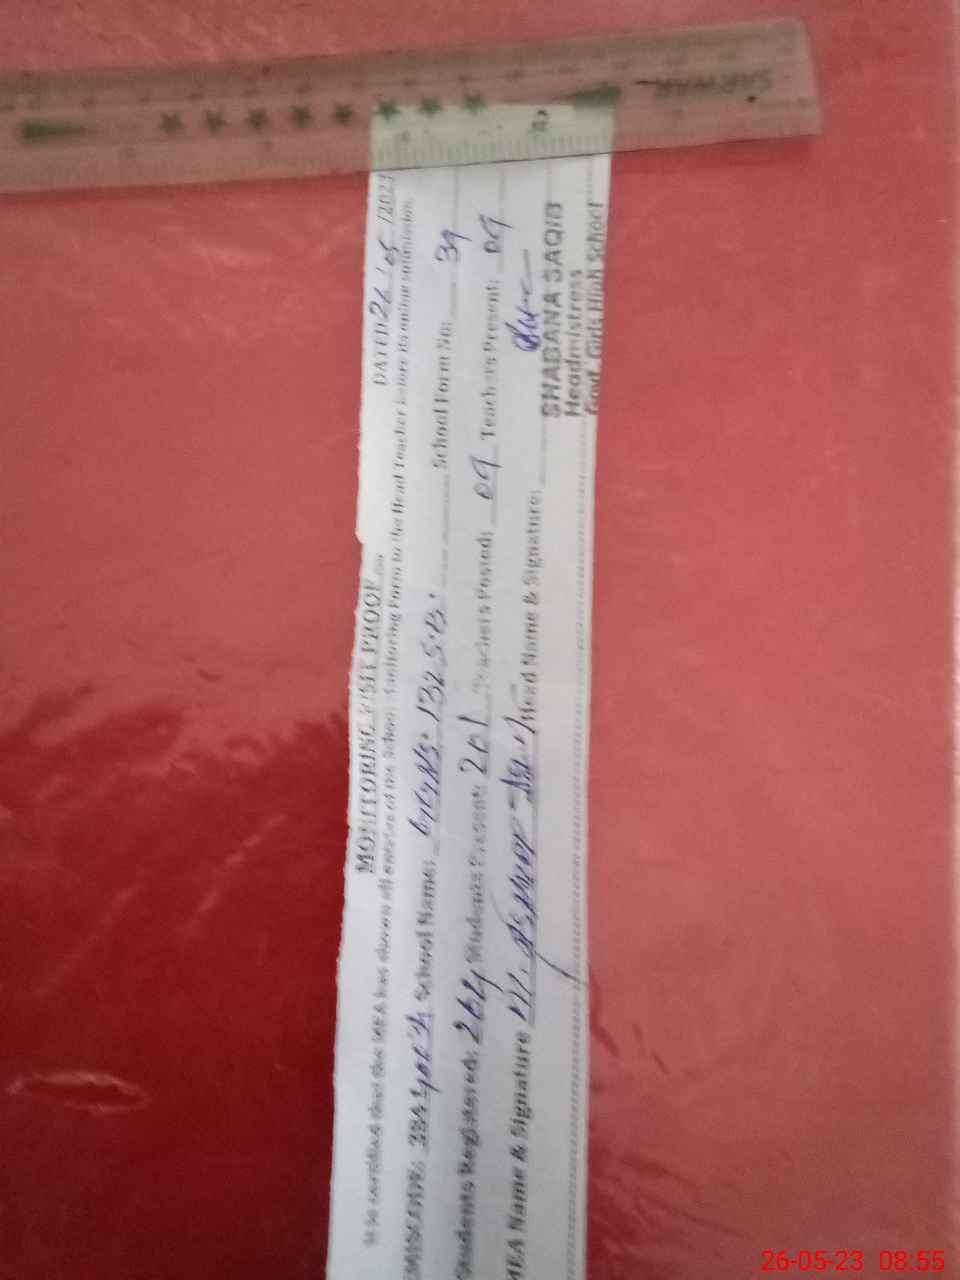 MONITORING VISIT PROOF DATED 26/05/2023
It is certified that the MEA has shown all entries of the School Monitoring Form to the Head Teacher before its online submission.
EMISCODE: School Name: School Form No: 39
Students Registered: 204 Students Present: 201 Teachers Posted: 09 Teachers Present: 09
MEA Name & Signature Head Name & Signature:
SHABANA SAQIB
Headmistress
Govt. Girls High School
SARWAR
26-05-23 08:55